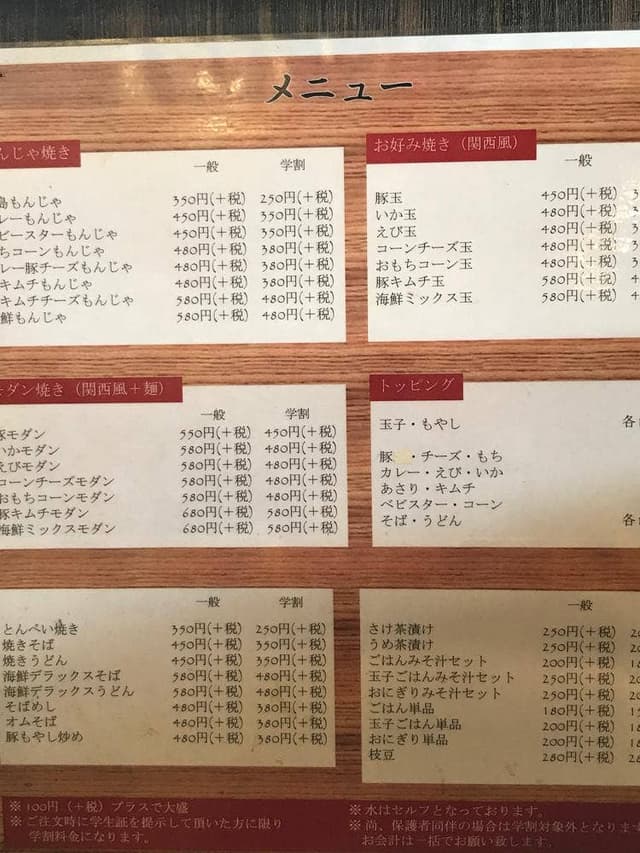 メニュー
んじゃ焼き
一般 学割
島もんじゃ 350円(+税) 250円(+税)
レーもんじゃ 450円(+税) 350円(+税)
ビースターもんじゃ 450円(+税) 350円(+税)
ちコーンもんじゃ 480円(+税) 380円(+税)
レー豚チーズもんじゃ 480円(+税) 380円(+税)
キムチもんじゃ 480円(+税) 380円(+税)
キムチチーズもんじゃ 580円(+税) 480円(+税)
鮮もんじゃ 580円(+税) 480円(+税)
お好み焼き(関西風)
一般
豚玉 450円(+税)
いか玉 480円(+税)
えび玉 480円(+税)
コーンチーズ玉 480円(+税)
おもちコーン玉 480円(+税)
豚キムチ玉 580円(+税)
海鮮ミックス玉 580円(+税)
モダン焼き(関西風+麺)
一般 学割
豚モダン 550円(+税) 450円(+税)
いかモダン 580円(+税) 480円(+税)
えびモダン 580円(+税) 480円(+税)
コーンチーズモダン 580円(+税) 480円(+税)
おもちコーンモダン 580円(+税) 480円(+税)
豚キムチモダン 680円(+税) 580円(+税)
海鮮ミックスモダン 680円(+税) 580円(+税)
トッピング
玉子・もやし 各
豚・チーズ・もち
カレー・えび・いか
あさり・キムチ
ベビスター・コーン
そば・うどん 各
一般 学割
とんぺい焼き 350円(+税) 250円(+税)
焼きそば 450円(+税) 350円(+税)
焼きうどん 450円(+税) 350円(+税)
海鮮デラックスそば 580円(+税) 480円(+税)
海鮮デラックスうどん 580円(+税) 480円(+税)
そばめし 480円(+税) 380円(+税)
オムそば 480円(+税) 380円(+税)
豚もやし炒め 480円(+税) 380円(+税)
一般
さけ茶漬け 250円(+税)
うめ茶漬け 250円(+税)
ごはんみそ汁セット 200円(+税)
玉子ごはんみそ汁セット 250円(+税)
おにぎりみそ汁セット 250円(+税)
ごはん単品 180円(+税)
玉子ごはん単品 200円(+税)
おにぎり単品 200円(+税)
枝豆 280円(+税)
※100円(+税)プラスで大盛
※ご注文時に学生証を提示して頂いた方に限り
学割料金になります。
※水はセルフとなっております。
※尚、保護者同伴の場合は学割対象外となりま
お会計は一括でお願い致します。